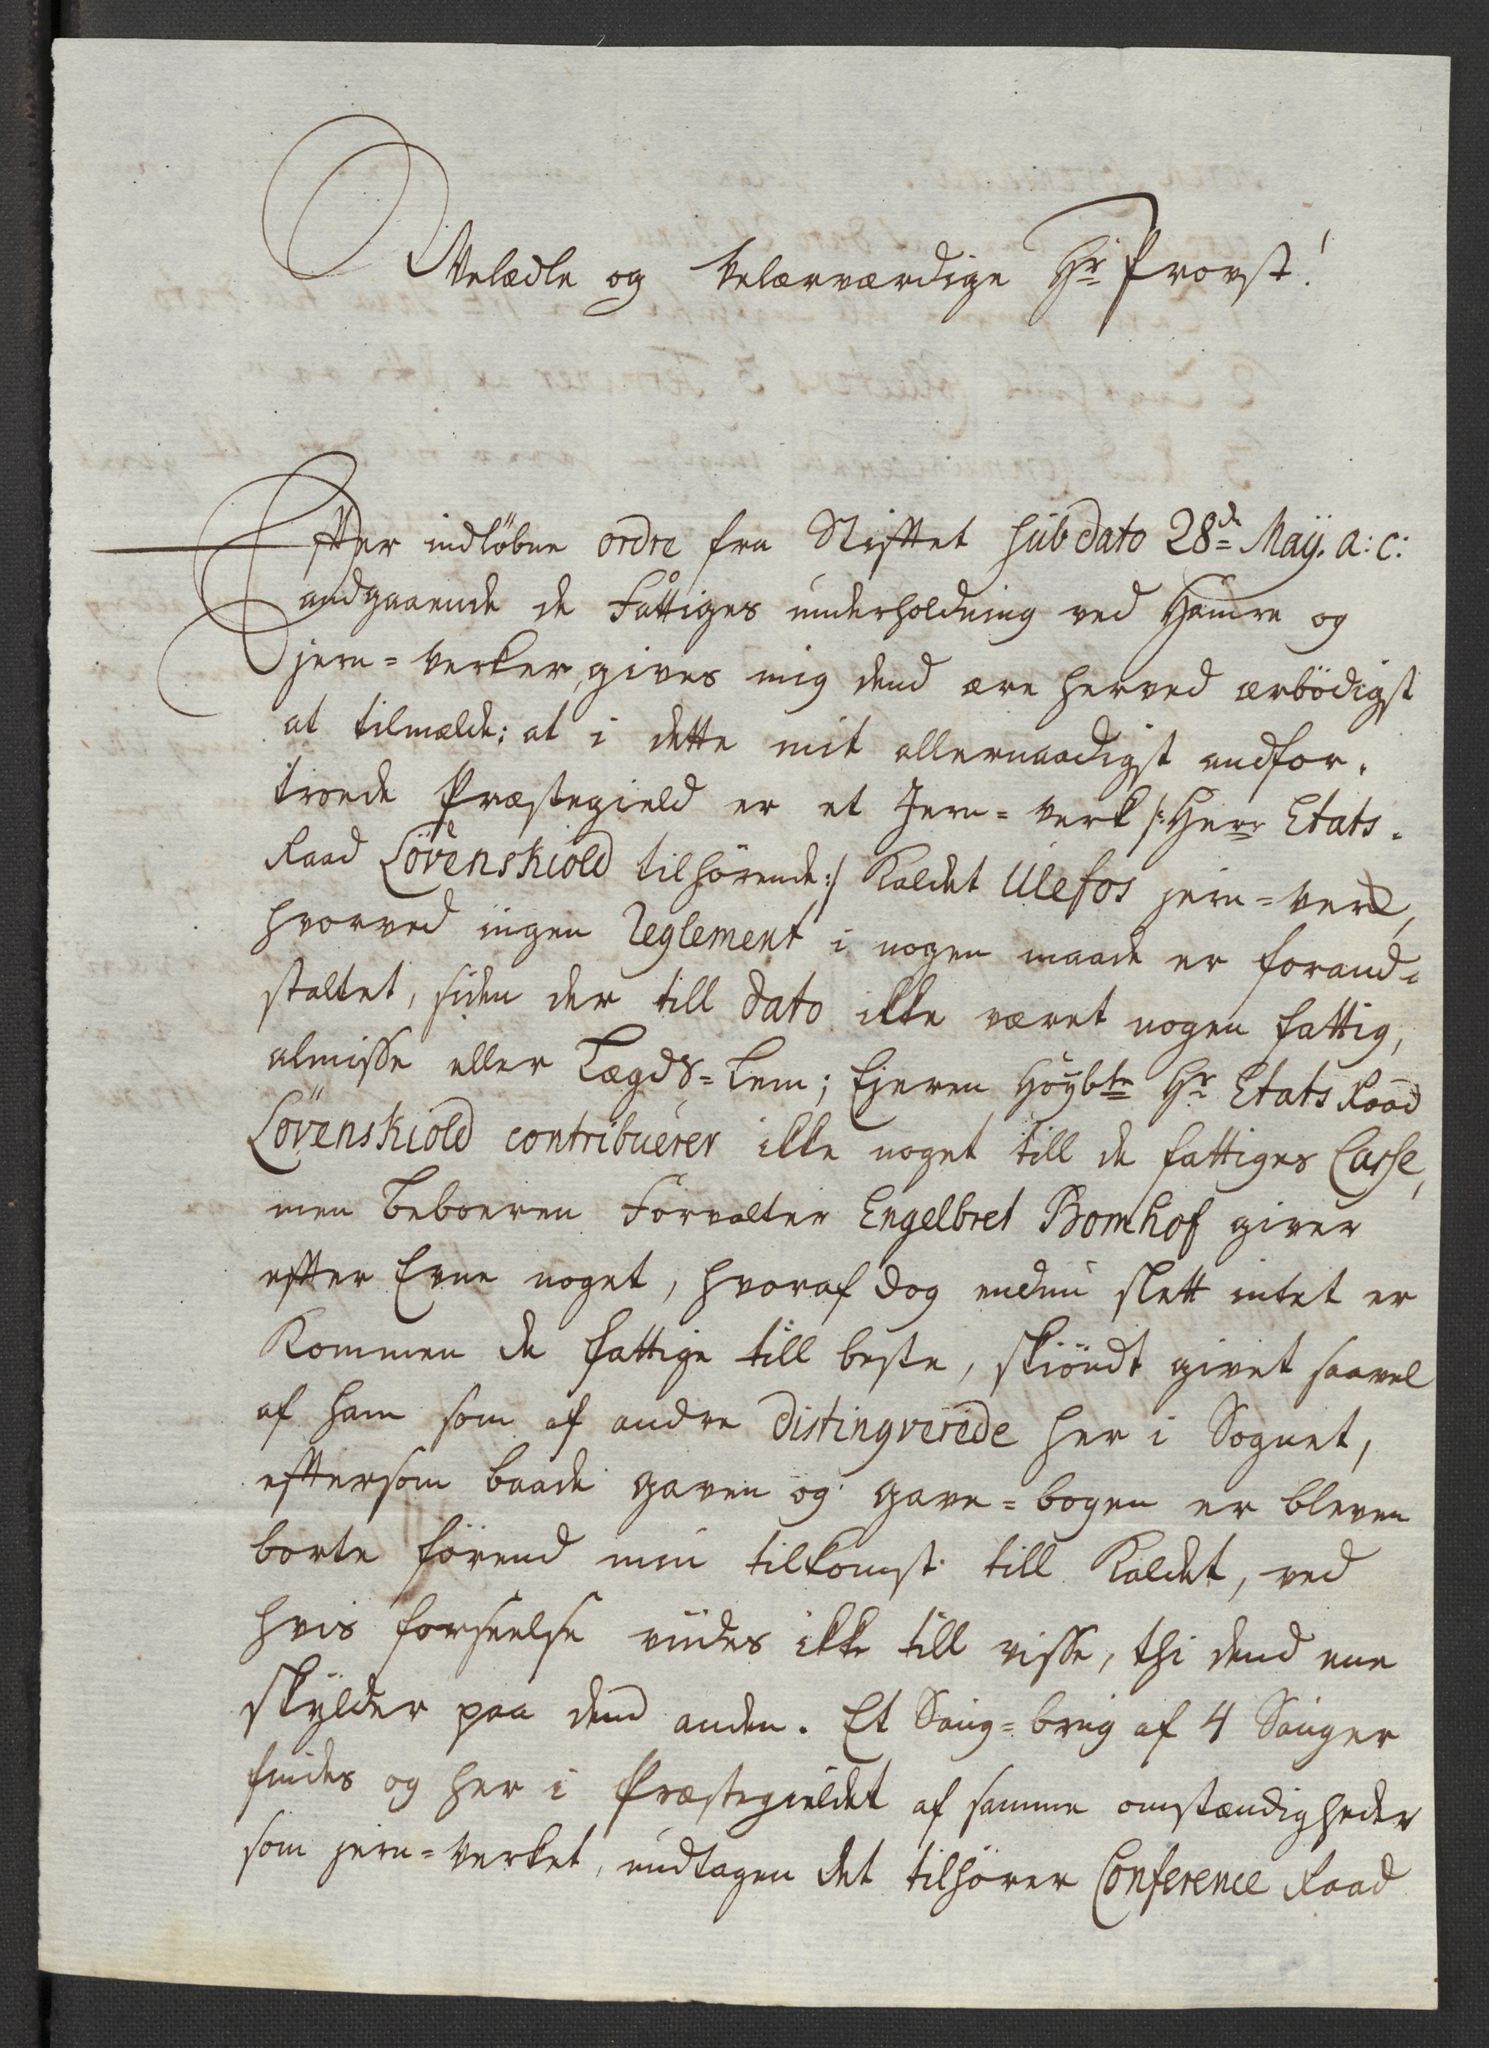 Velædle og Velærværdige Hr Provst!
Effter indløbne ordre fra Stifftet sub dato 28de Maÿ. a: c:
andgaaende de Fattiges underholdning ved Hamre og
jern=Verker, gives mig dend ære herved ærbödigst
at tilmælde: at i dette mit allernaadigst andfor-
troede Præstegield er et Jern=verk /: Herr Etats-
Raad Lövenskiold tilhörende :/ Kaldet Ulefos jern=verk,
hvorved ingen Reglement i nogen maade er forand-
staltet, siden der till dato ikke været nogen fattig,
almisse eller Lægds=Lem; Ejeren Höÿbte Hr Etats Raad
Lövenskiold contribuerer ikke noget till de fattiges Casse,
men Beboeren Forvalter Engelbret Bomhof giver
effter Evne noget, hvoraf dog endnu slett intet er
Kommen de fattige till beste, skiöndt givet saavel
af ham som af andre distingverede her i Sognet,
efftersom baade gaven og gave=bogen er bleven
borte förend min tilkomst till Kaldet, ved
hvis forseelse vides ikke till visse, thi dend ene
skÿlder paa dend anden. Et Saug=brug af 4 Sauger
findes og her i Præstegieldet af samme omstændigheder
som jern=Verket, undtagen det tilhörer Conference Raad